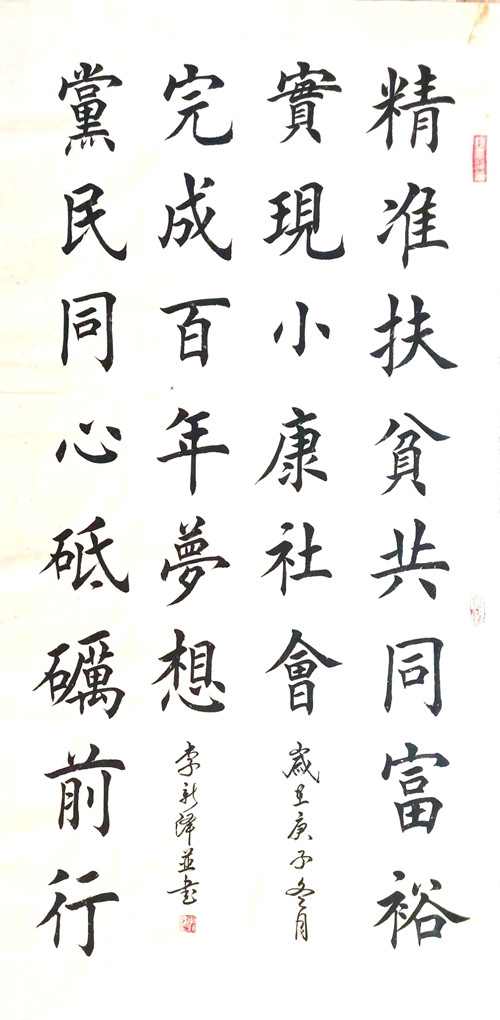 精准扶貧共同富裕
實現小康社會
歲在庚子冬月
完成百年夢想
李新澤並書
黨民同心砥礪前行